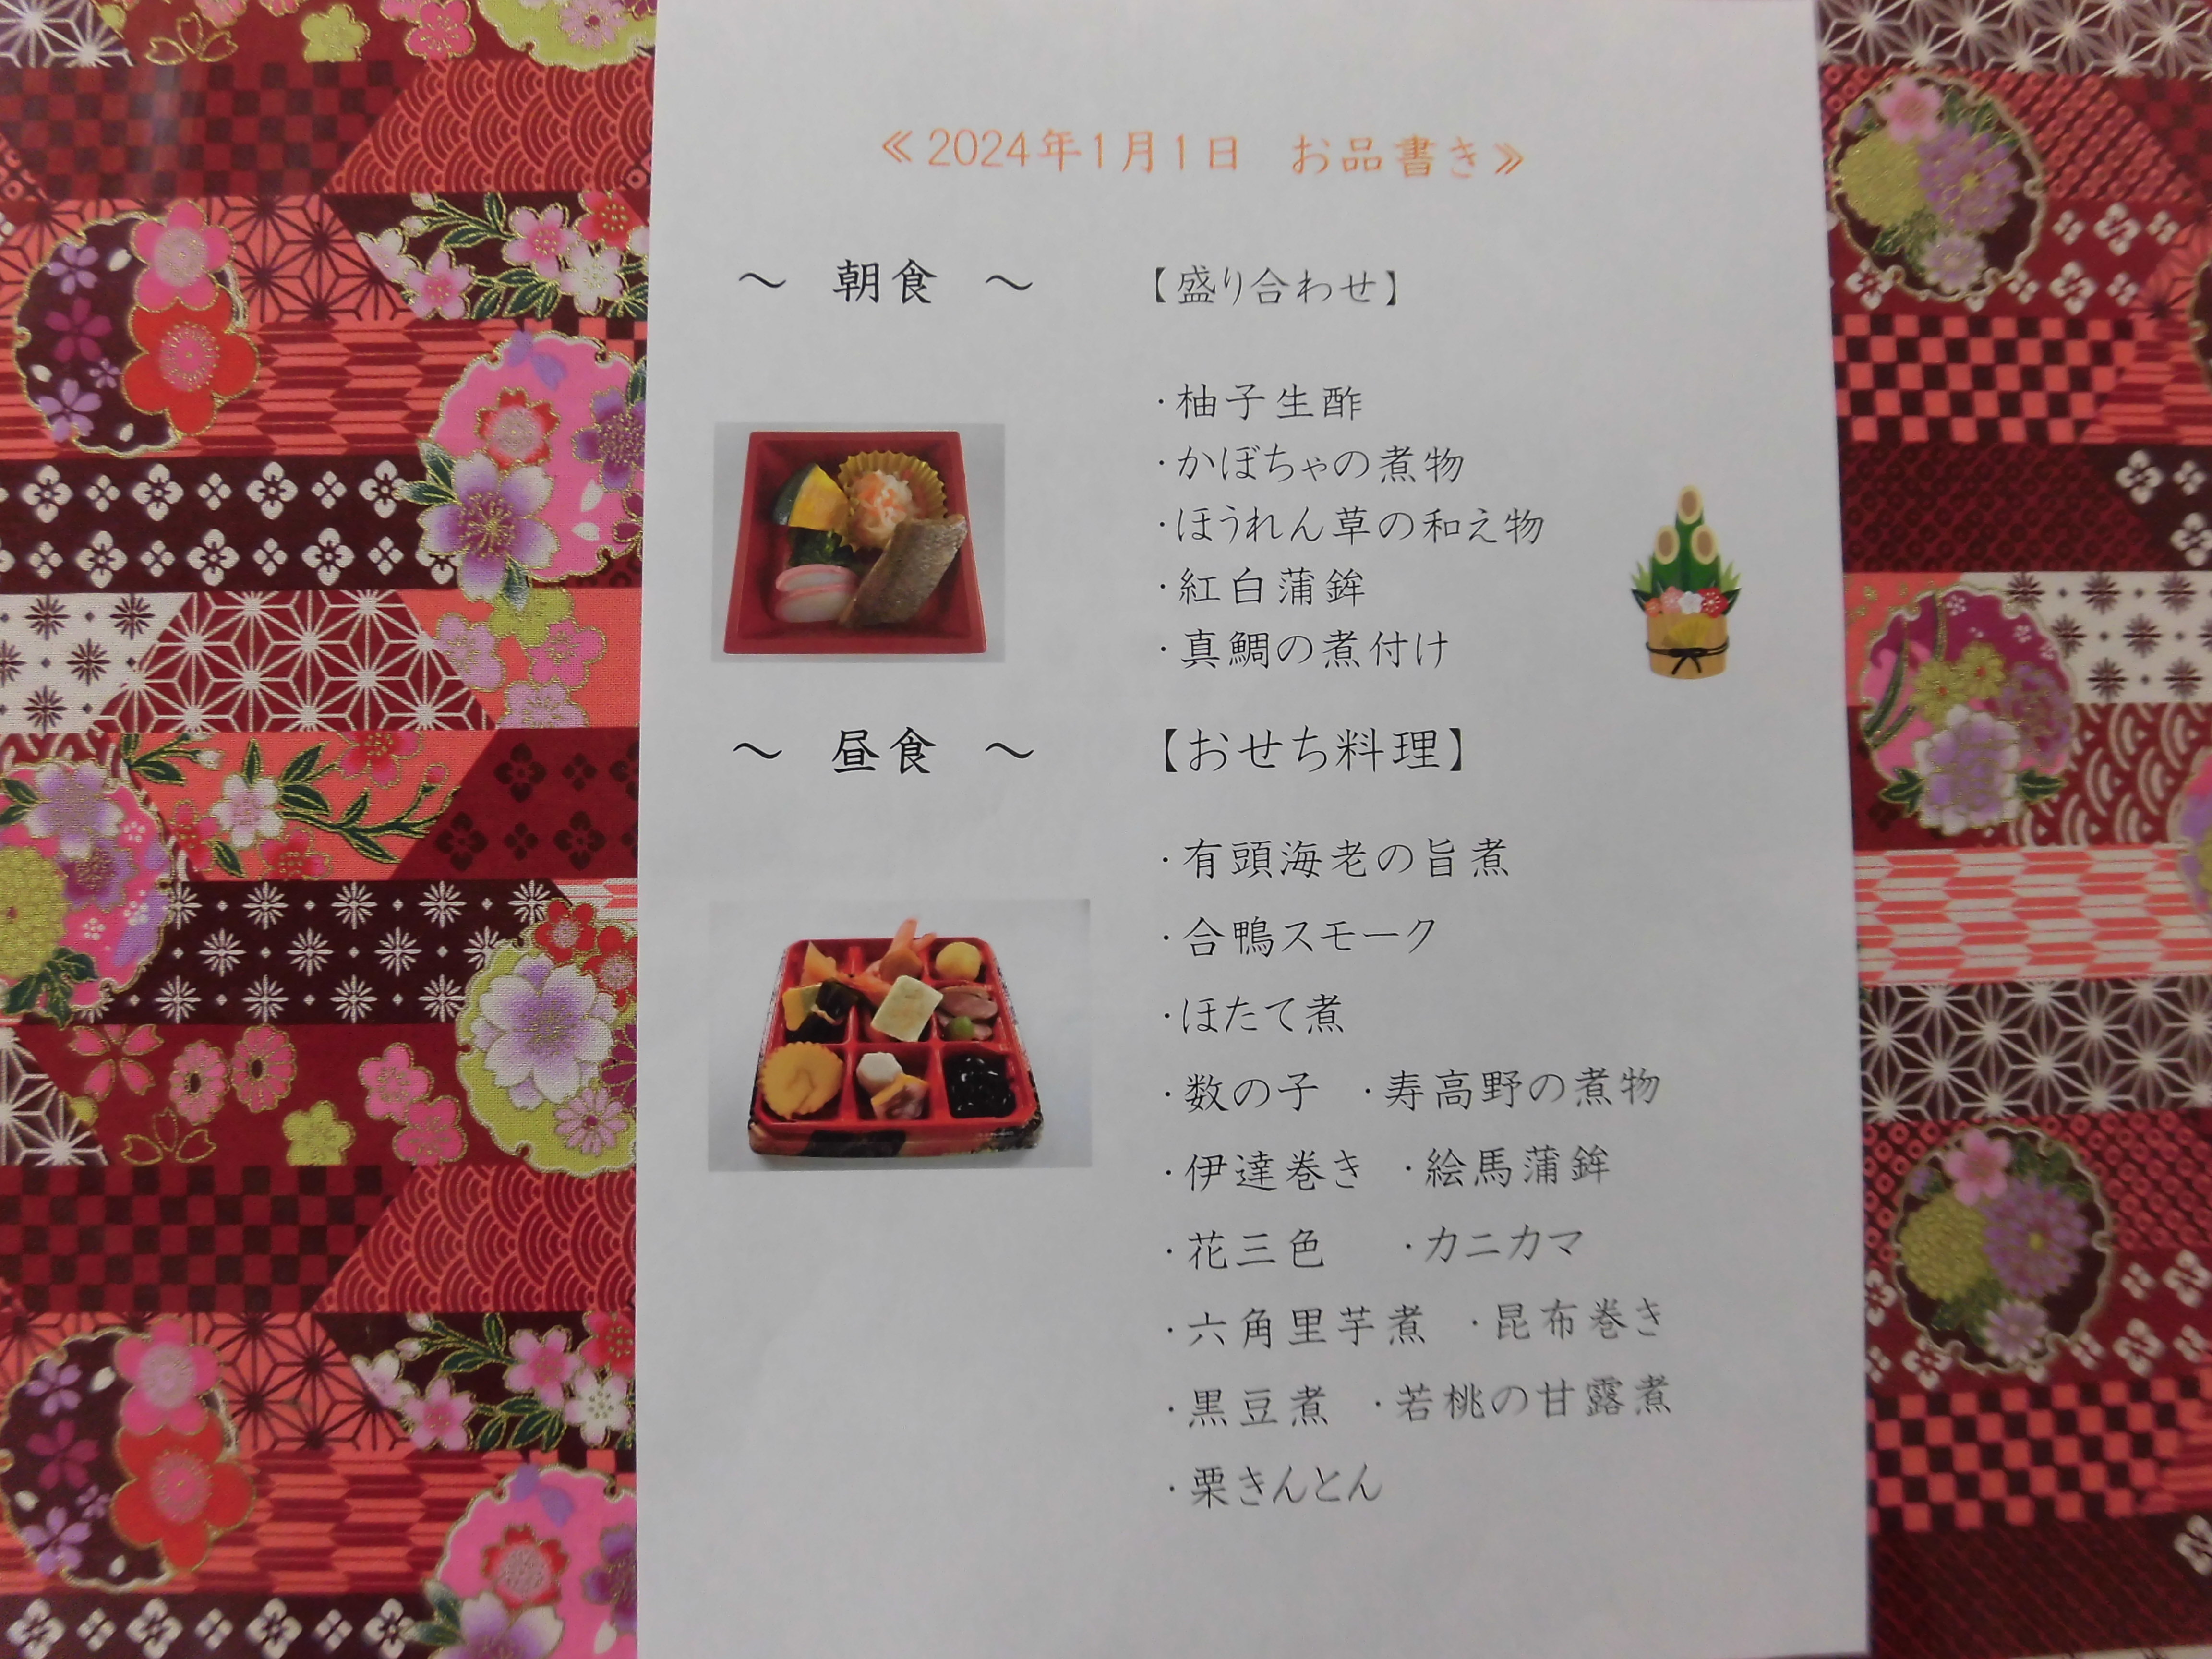 ≪2024年1月1日 お品書き≫
～ 朝食 ～ 【盛り合わせ】
・柚子生酢
・かぼちゃの煮物
・ほうれん草の和え物
・紅白蒲鉾
・真鯛の煮付け
～ 昼食 ～ 【おせち料理】
・有頭海老の旨煮
・合鴨スモーク
・ほたて煮
・数の子 ・寿高野の煮物
・伊達巻き ・絵馬蒲鉾
・花三色 ・カニカマ
・六角里芋煮 ・昆布巻き
・黒豆煮 ・若桃の甘露煮
・栗きんとん